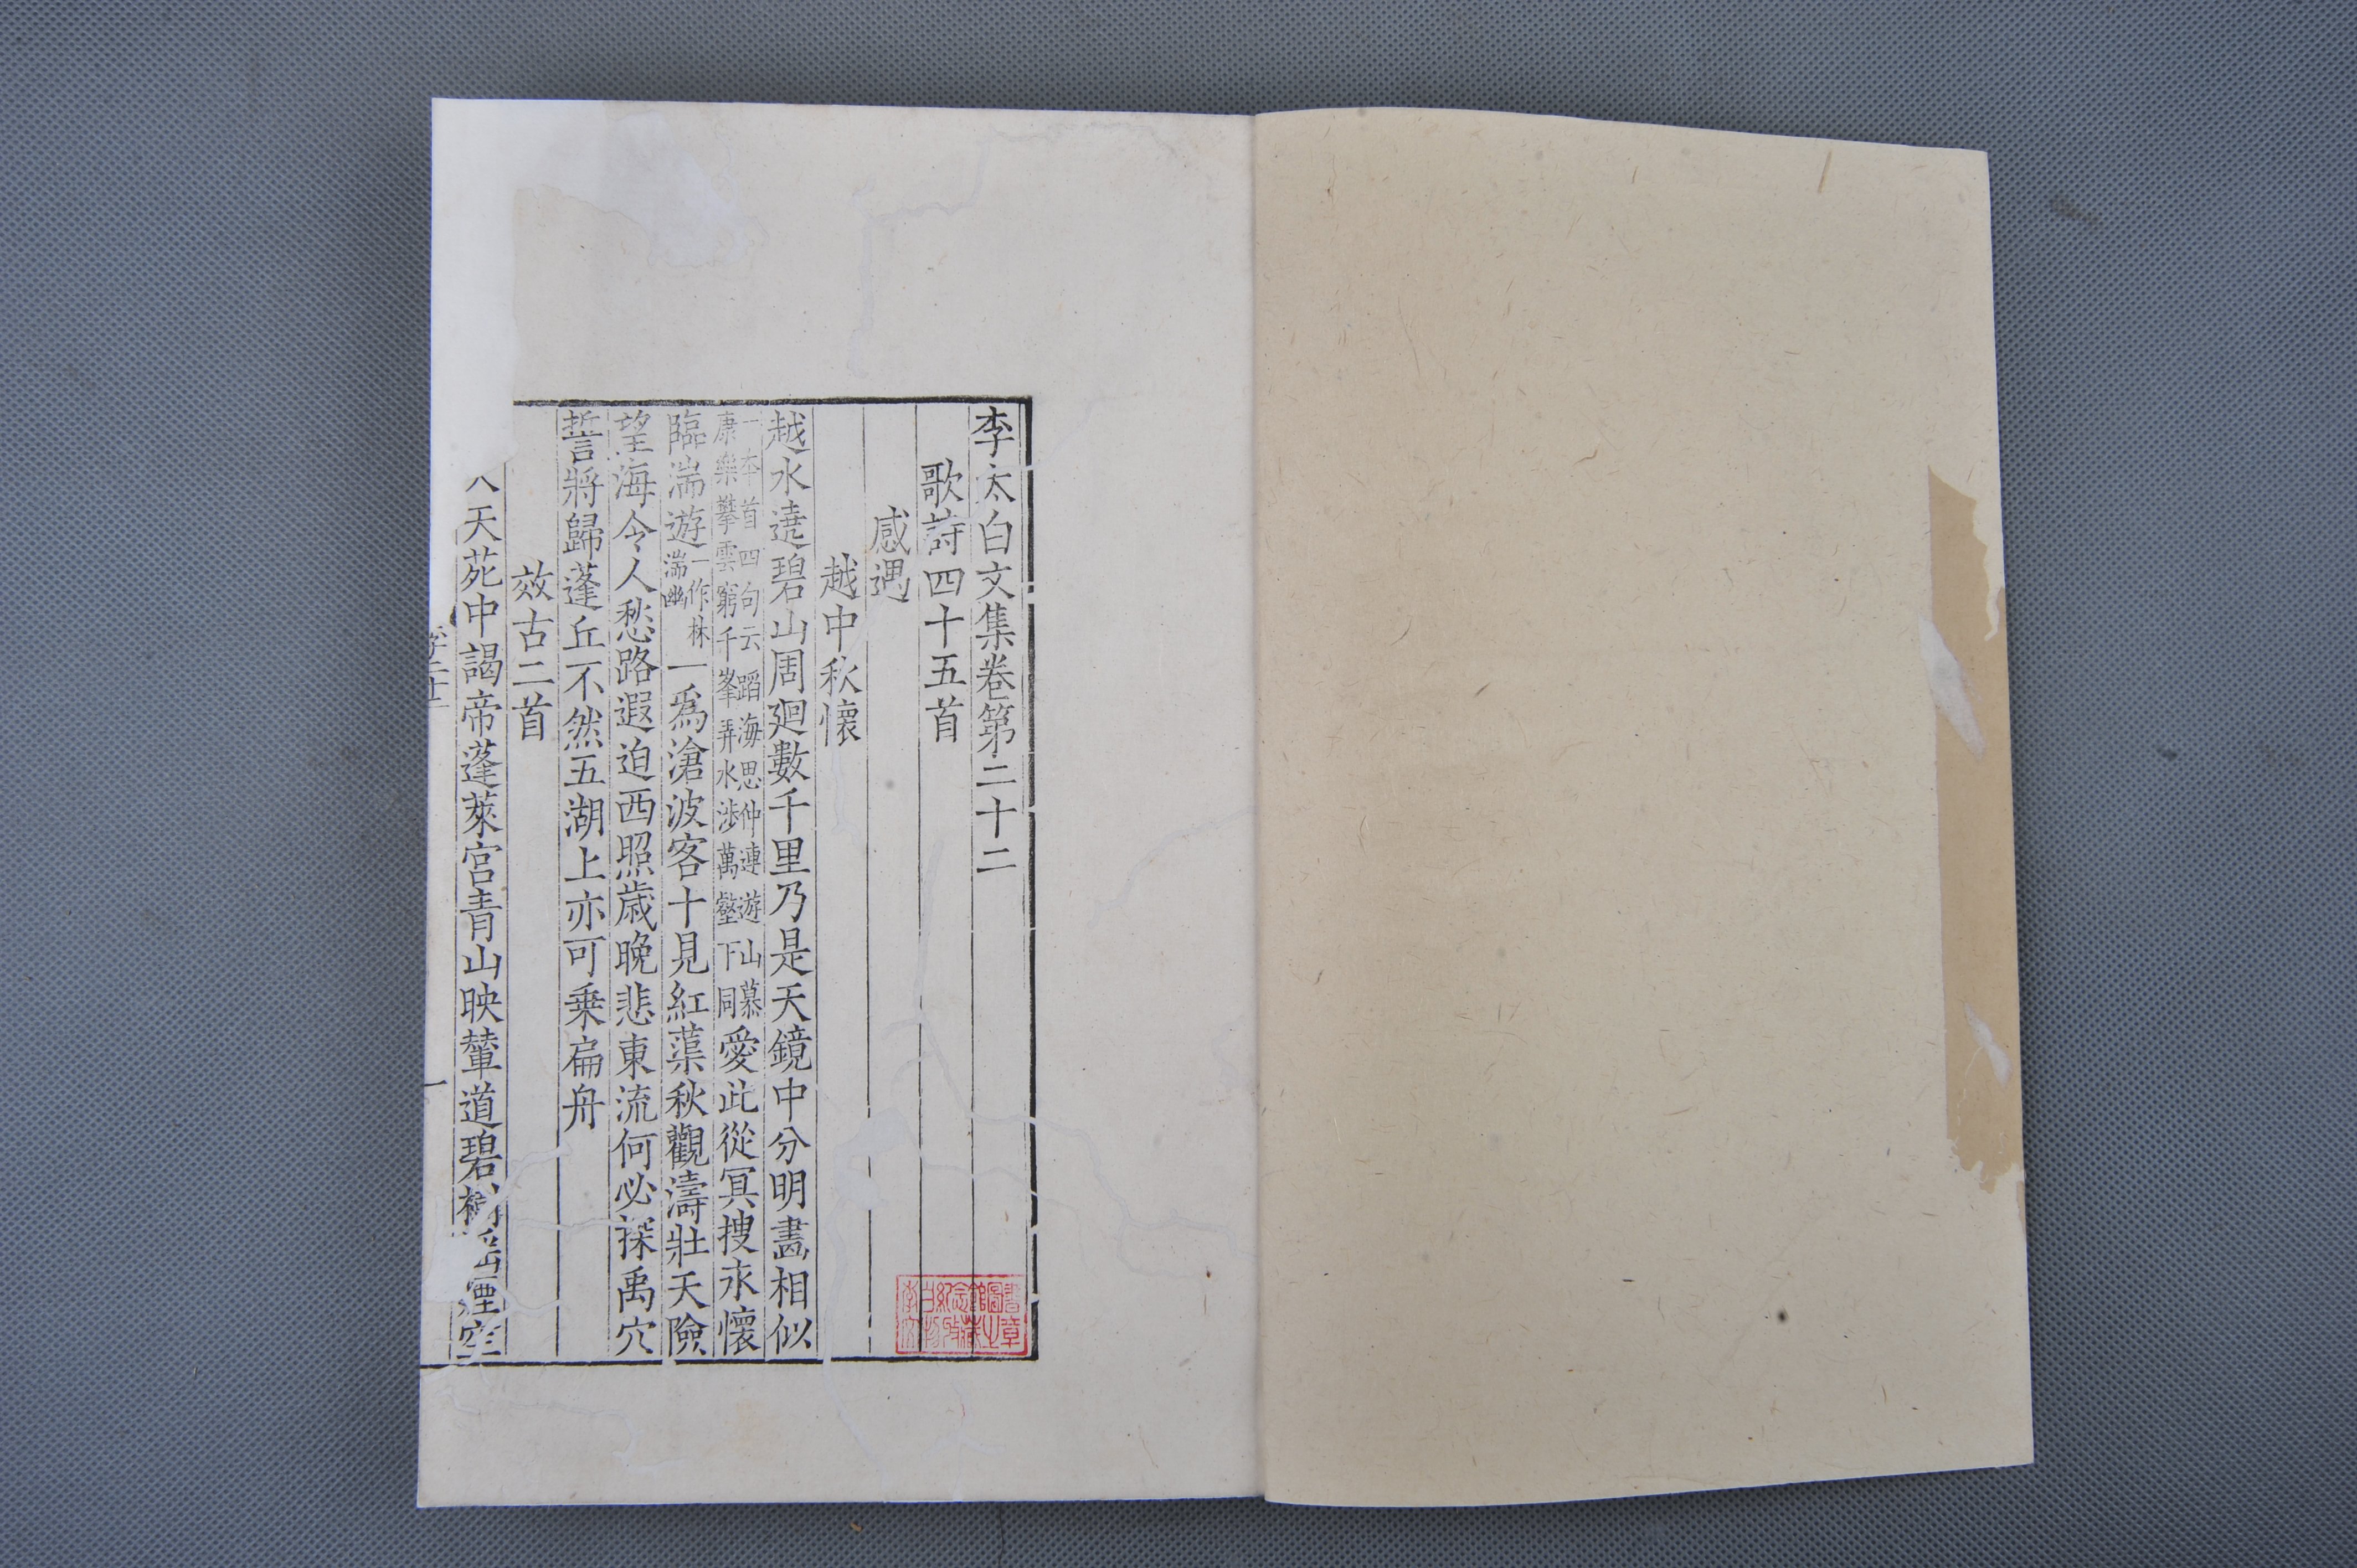 李太白文集卷第二十二
歌詩四十五首
感遇
越中秋懷
越水遶碧山周廻數千里乃是天鏡中分明畫相似
一本首四句云蹈海思仲連遊山慕康樂攀雲窮千峯弄水涉萬壑下同愛此從冥搜永懷
臨湍遊一作林湍幽一爲滄波客十見紅蕖秋觀濤壯天險
望海令人愁路遐迫西照歳晚悲東流何必探禹穴
誓將歸蓬丘不然五湖上亦可乗扁舟
效古二首
天苑中謁帝蓬萊宮青山映輦道碧樹揺煙空
李二十二
一
李白紀念館圖書
文物收藏之章